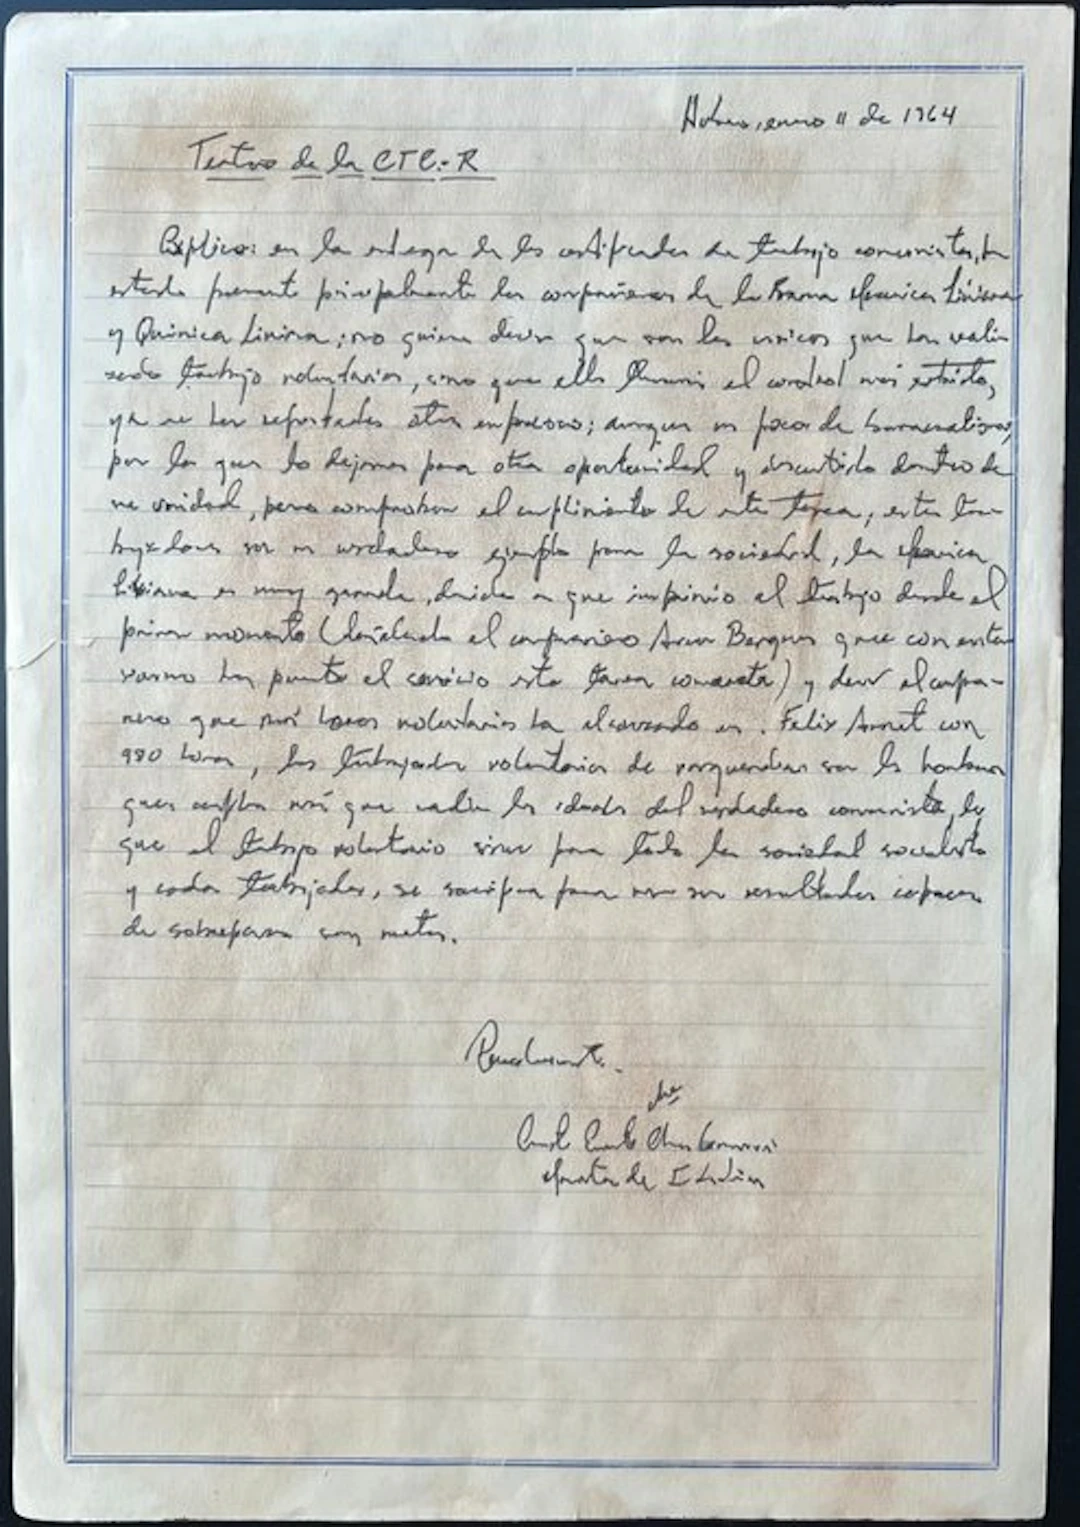 Habana, enero 11 de 1964
Teatro de la CTC-R
Explico: en la entrega de los certificados de trabajo comunistas, ha
estado presente principalmente los compañeros de la Rama Mecánica Liviana
y Química Liviana; no quiere decir que son los unicos que han reali
zado trabajo voluntario, sino que ellos llevaron el control más estricto,
ya se han reportados otras empresas; aunque un poco de burocratismo,
por lo que lo dejamos para otra oportunidad y discutirlo dentro de
unidad, para comprobar el cumplimiento de esta tarea, estos tra
bajadores son un verdadero ejemplo para la sociedad, la Mecánica
Liviana es muy grande, debido a que imprimió el trabajo desde el
primer momento (señalando el compañero Arcos Bergnes que con entu
siasmo ha puesto al servicio esta tarea concreta) y decir el compa-
ñero que más horas voluntarias ha alcanzado es. Felix Arnet con
980 horas, los trabajadores voluntarios de vanguardias son los hombres
que cumplen más que nadie los ideales del verdadero comunista,
que el trabajo voluntario sirve para toda la sociedad socialista
y cada trabajador, se sacrifica para resultados capaces
de sobrepasar metas.
che